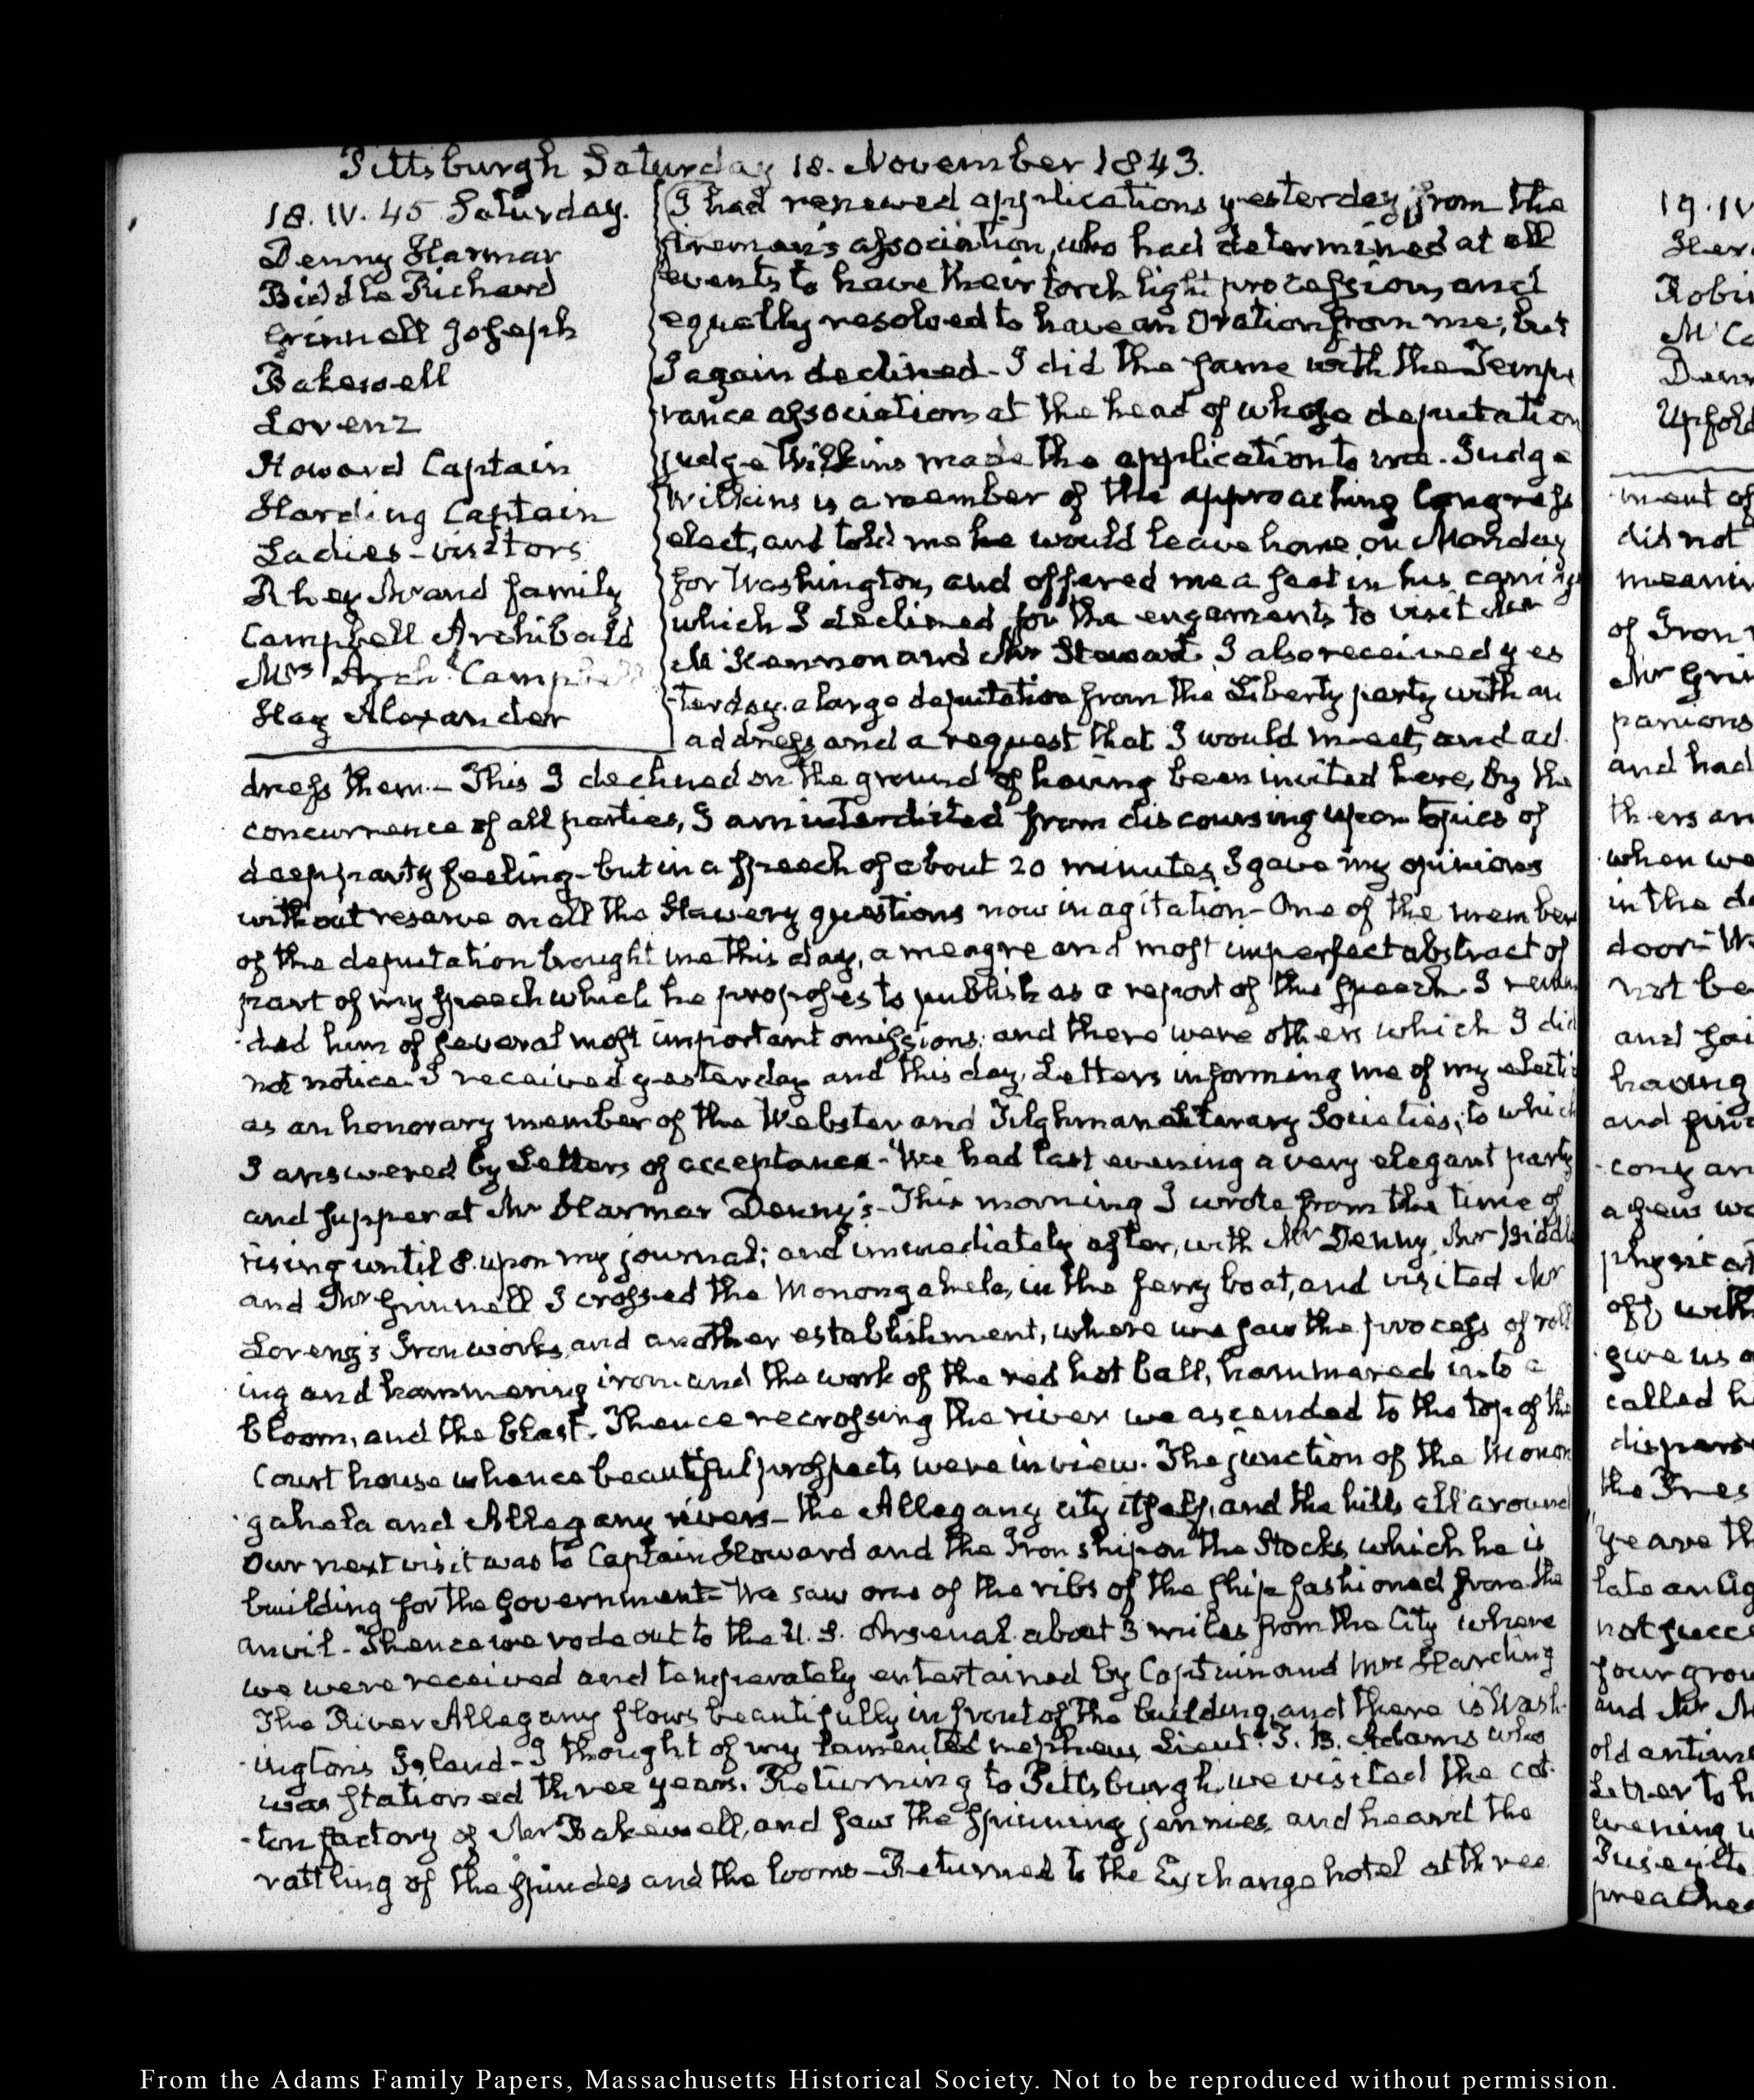 Pittsburgh Saturday 18. November 1843.
18. IV. 45 Saturday.
Denny Harmar
Biddle Richard
Grinnell Joseph
Bakewell
Lorenz
Howard Captain
Harding Captain
Ladies-visitors
Rhey Mr and family
Campbell Archibald
Mrs Archd. Campbell
Hay Alexander
I had renewed applications yesterday, from the
fireman's association, who had determined at all
events to have their torch light procession, and
equally resolved to have an Oration from me; but
I again declined - I did the same with the Tempe
rance association, at the head of whose deputation
judge Wilkins made the application to me. Judge
Wilkins is a member of the approaching Congress
elect, and told me he would leave home on Monday
for Washington, and offered me a seat in his carriage
which I declined, for the engaments to visit Mr
McKennon and Mr Stewart. I also received yes
terday a large deputation from the Liberty party with an
address, and a request that I would meet, and ad
dress them. - This I declined on the ground of having been invited here, by the
concurrence of all parties, I am interdicted from discoursing upon topics of
deep party feeling - but in a speech of about 20 minutes, I gave my opinions
without reserve on all the Slavery questions now in agitation - One of the member
of the deputation brought me this day, a meagre and most imperfect abstract of
part of my speech which he proposes to publish as a report of the speech. I remin
ded him of several most important omissions; and there were others which I did
not notice. I received yesterday and this day, Letters informing me of my electi
as an honorary member of the Webster and Tilghman Literary Societies; to which
I answered by Letters of acceptance - We had last evening a very elegant party
and supper at Mr Harmar Denny's - This morning I wrote from the time of
rising until 8. upon my journal; and immediately after, with Mr Denny, Mr Biddle
and Mr Grinnell I crossed the Monongahela, in the ferry boat, and visited Mr
Lorenz's Iron works, and another establishment, where we saw the process of roll
ing and hammering iron, and the work of the red hot ball, hammered into a
bloom, and the blast. Thence recrossing the river we ascended to the top of the
Court house whence beautiful prospects were in view. The junction of the Monon
gahela and Allegany rivers - the Allegany city itself, and the hills all around
Our next visit was to Captain Howard and the Iron ship on the Stocks, which he is
building for the Government - We saw one of the ribs of the ship fashioned from the
anvil - Thence we rode out to the U. S. Arsenal about 3 miles from the City where
we were received and temperately entertained by Captain and Mrs Harding
The River Allegany flows beautifully in front of the building, and there is Wash
ington's Island - I thought of my lamented nephew, Lieut. T. B. Adams who
was stationed three years. Returning to Pittsburgh, we visited the cot
ton factory of Mr Bakewell, and saw the spinning jennies, and heard the
rattling of the spindes and the looms - Returned to the Exchange hotel at three
19. IV
Robi
McCa
Denn
Upfold
ment of
did not
meanin
of Iron
Mr Grin
panions
and had
thers an
when we
in the d
door - W
not be
and sai
having
and
cong an
a few wo
physic
off, with
give us a
called h
the Pres
late an
not succe
four grou
and Mr M
old antim
Letter to h
Evening w
preached
From the Adams Family Papers, Massachusetts Historical Society. Not to be reproduced without permission.